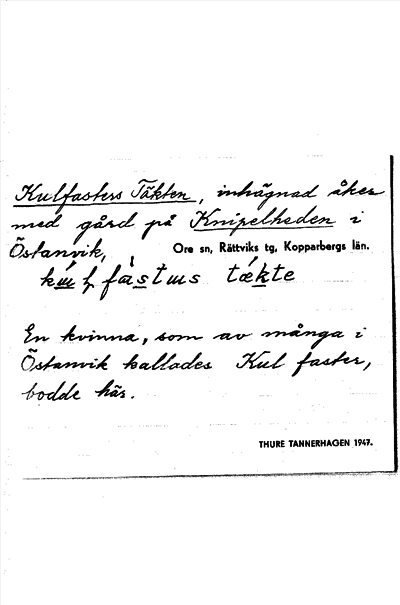 Kulfasters Täkten, inhägnad åker
med gård på Knipelheden i
Östanvik, Ore sn, Rättviks tg, Kopparbergs län.
fastɯs tækte
En kvinna, som av många i
Östanvik kallades Kul faster,
bodde här.
THURE TANNERHAGEN 1947.